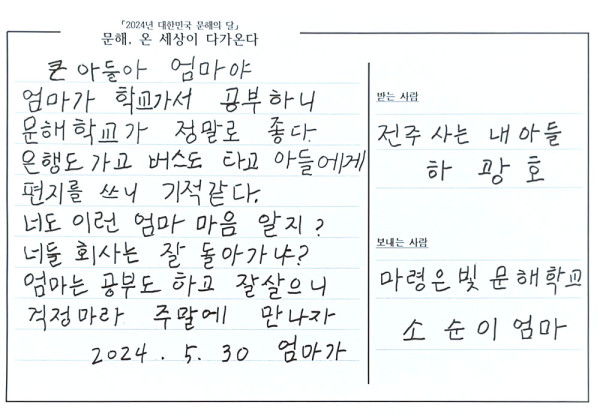 「2024년 대한민국 문해의 달」
문해, 온 세상이 다가온다
큰아들아 엄마야
엄마가 학교가서 공부하니
문해학교가 정말로 좋다.
은행도 가고 버스도 타고 아들에게
편지를 쓰니 기적같다.
너도 이런 엄마 마음 알지?
너둘 회사는 잘 돌아가냐?
엄마는 공부도 하고 잘살으니
걱정마라 주말에 만나자
2024. 5. 30 엄마가
받는 사람
전주 사는 내아들
하 광 호
보내는 사람
마령은빛 문해학교
소 순이 엄마